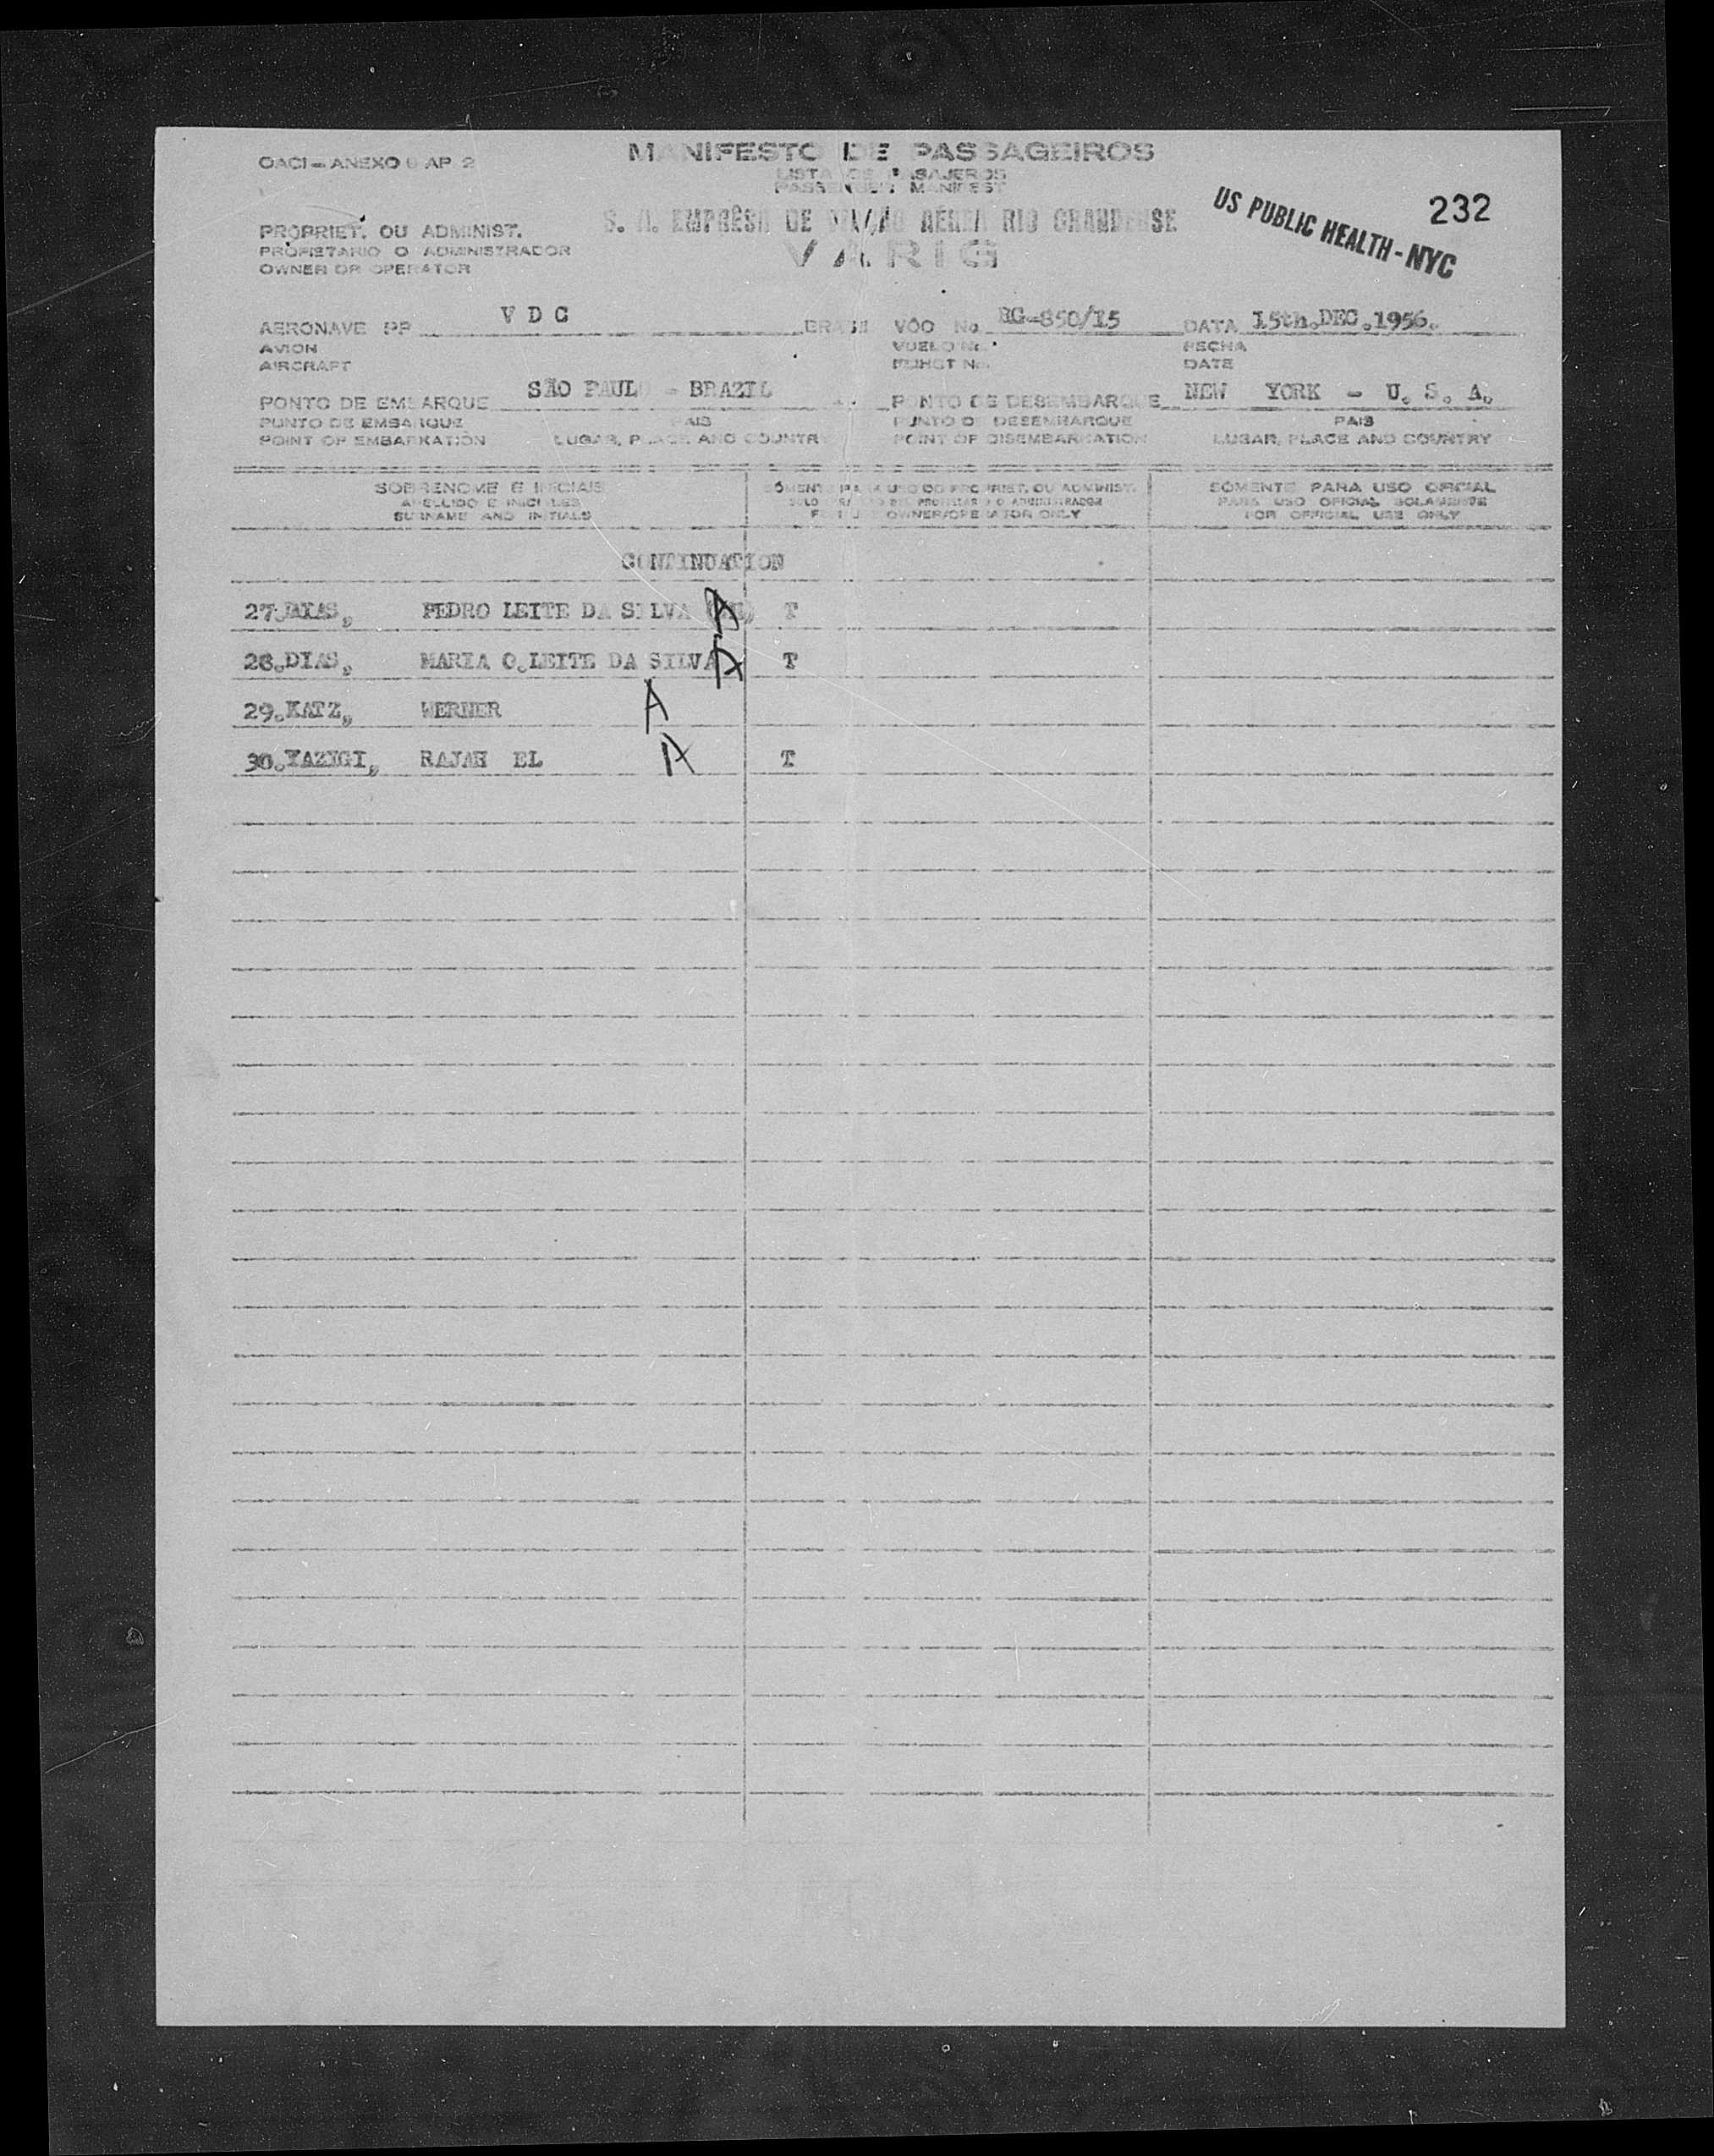 OACI — ANEXO 9 AP 2
MANIFESTO DE PASSAGEIROS
LISTA DE PASAJEROS
PASSENGER MANIFEST
232
US PUBLIC HEALTH - NYC
PROPRIET. OU ADMINIST.
PROPIETARIO O ADMINISTRADOR
OWNER OR OPERATOR
S. A. EMPRÊSA DE VIAÇÃO AÉREA RIO GRANDENSE
VARIG
AERONAVE PP V D C BRASIL VÔO No. RG-850/15 DATA 15th.DEC.1956.
AVION VUELO No. FECHA
AIRCRAFT FLIHGT No. DATE
PONTO DE EMBARQUE SÃO PAULO - BRAZIL PONTO DE DESEMBARQUE NEW YORK - U. S. A.
PUNTO DE EMBARQUE PAIS PUNTO DE DESEMBARQUE PAIS
POINT OF EMBARKATION LUGAR, PLACE AND COUNTRY POINT OF DISEMBARKATION LUGAR, PLACE AND COUNTRY
SOBRENOME E INICIAIS SÓMENTE PARA USO DO PROPRIET. OU ADMINIST. SÓMENTE PARA USO OFICIAL
APELLIDO E INICIALES SOLO PARA USO DEL PROPIETARIO O ADMINISTRADOR PARA USO OFICIAL SOLAMENTE
SURNAME AND INITIALS FOR USE OWNER/OPERATOR ONLY FOR OFFICIAL USE ONLY
CONTINUATION
27.DIAS, PEDRO LEITE DA SILVA A T
28.DIAS, MARIA O.LEITE DA SILVA A T
29.KATZ, WERNER A
30.YAZIGI, RAJAH EL A T